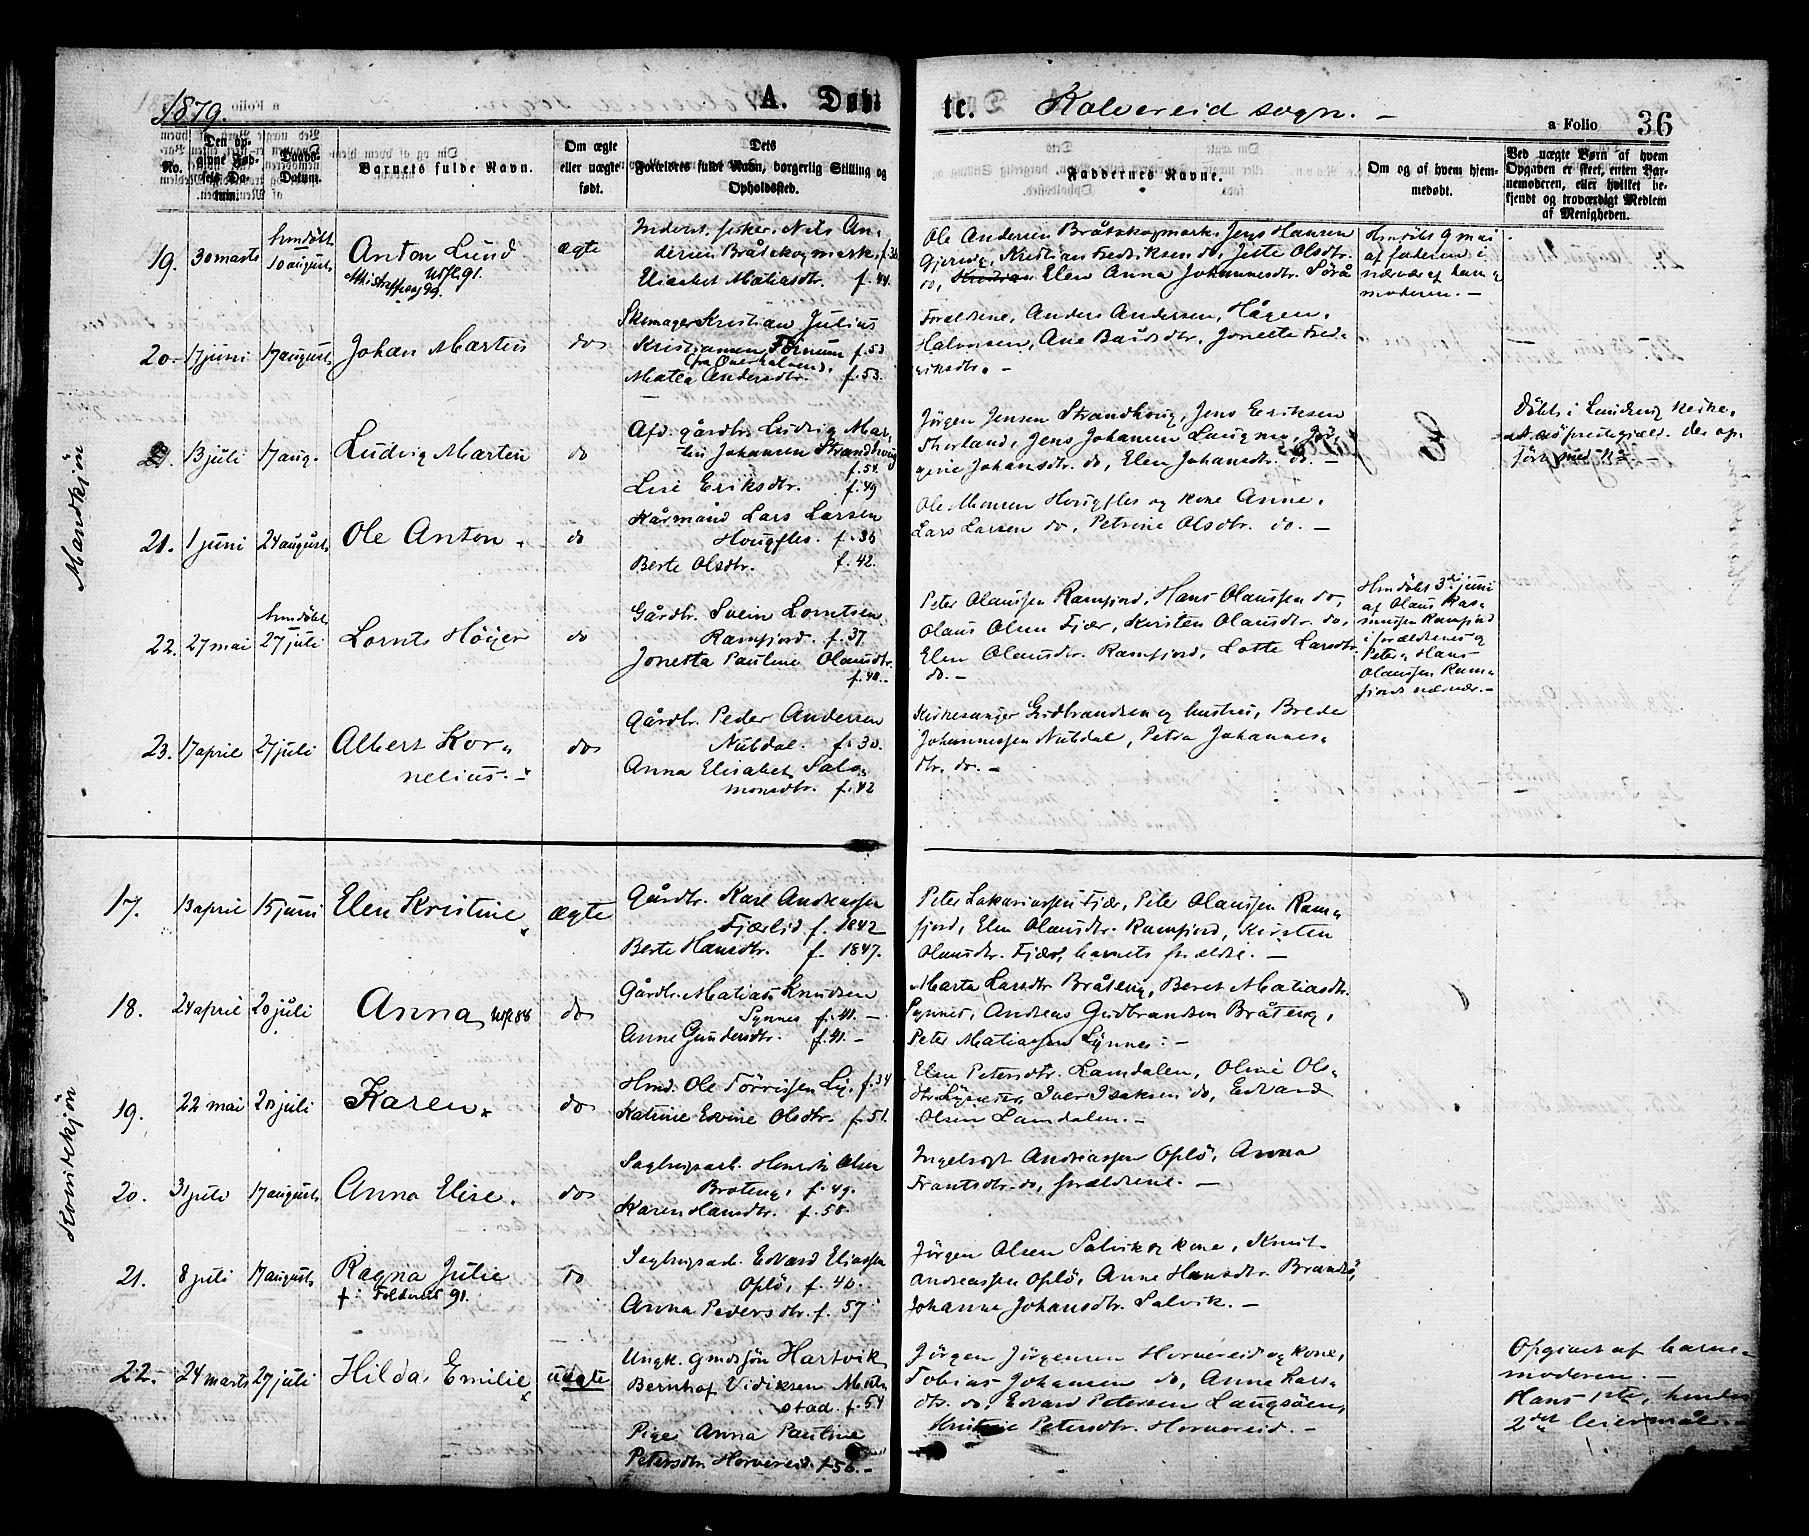 1879.
A. Døbte.
Kolvereid sogn. -
a Folio 36
No.
Den opgivne Fødsels Datum.
Daabs-Datum.
Barnets fulde Navn.
Om ægte eller uægte født.
Dets Forældres fulde Navn, borgerlig Stilling og Opholdssted.
Faddernes Navne.
Om og af hvem hjemmedøbt.
Ved uægte Børn af hvem Opgaven er skeet, enten Barnemoderen, eller hvilket bekjendt og troværdigt Medlem af Menigheden.
Mandkjön
19. 30 marts hmdöbt 10 august Anton Lund ægte
Attistrefpas 99. Udfl. 91.
Inderst, fisker Nils Andersen Bråtskogmark, f. 36
Elisabet Matiasdtr. f. 44.
Ole Andersen Bråtskogmark, Jens Hansen
Gjervig, Kristian Fredriksen do, Jette Olsdtr.
do, Elen Anna Johannesdtr. Sörå
Hmdöbt 9 mai
af faderen i
nærvær af barne
moderen. -
20. 17 juni 17 august Johan Martin do
Skomager Kristian Julius
Kristiansen Fornum f. 53
(fra Overhalven).
Matea Andersdtr. f. 53.
Forældrene, Anders Andersen, Hågen
Halvorsen, Ane Bårdsdtr, Jonette Fred-
riksdtr. -
13 juli 17 aug. Ludvig Martin do
Afd. gårdbr. Ludvig Mar-
tin Johansen Strandhoug
f. 54.
Lise Eriksdtr. f. 49
Jörgen Jensen Strandhoug, Jens Eriksen
Thorland, Jens Johansen Laugmo, Jör-
gine Johansdtr. do, Elen Johansdtr. do. -
Döbt i Lundring kirke,
præstegjæld. der op-
fört med No. -
21. 1 juni 24 august Ole Anton. do
Kårmand Lars Larsen
Hougfles. f. 36
Berte Olsdtr. f. 42.
Ole Monsen Hougfles og kone Anne,
Lars Larsen do, Petrine Olsdtr. do. -
22. 27 mai hmdöbt 27 juli Lornts Höyer do
Gårdbr. Svein Lorntsen
Ramfjord. f. 37.
Jonetta Pauline Olausdtr.
f. 40. -
Peter Olaussen Ramfjord, Hans Olaussen do,
Olaus Olsen Fjær, Kirsten Olausdtr. do,
Elen Olausdtr. Ramfjord, Lotte Larsdtr.
do. -
Hmdöbt 3de juni
af Olaus Ras-
mussen Ramfjord
i forældrenes og
Peter og Hans
Olaussen Ram-
fjords nærvær. -
23. 17 april 27 juli Albert Kor-
nelius. - do
Gårdbr. Peder Andersen
Nubdal. f. 30.
Anna Elisabet Salo-
monsdtr. f. 42
Kirkesanger Gudbrandsen og hustru, Brede
Johannessen Nubdal, Petra Johannes-
dtr. do. -
Kvindekjön
17. 13 april 15 juni Elen Kristine ægte
Gårdbr. Karl Andreassen
Fjærlid f. 1842
Berte Hansdtr. f. 1847.
Peter Sakariassen Fjær, Peter Olaussen Ram-
fjord, Elen Olausdtr. Ramfjord, Kirsten
Olausdtr. Fjær, barnets forældre. -
18. 24 april 20 juli Anna, Udfl. 88 do
Gårdbr. Matias Knudsen
Synnes f. 41. -
Anne Gundersdtr. f. 41. -
Marta Larsdtr. Bråteng, Beret Matiasdtr.
Synnes, Andreas Gudbrandsen Bråteng,
Peter Matiassen Synnes. -
19. 22 mai 20 juli Karen. do
Hmd. Ole Törrissen Ly. f. 34
Katrine Evine Olsdtr. f. 51.
Elen Petersdtr. Lamdalen, Oline Ols-
dtr. Lysæter, Iver Isaksen do, Edvard
Olsen Lamdalen. -
20. 31 juli 17 august Anna Elise. do
Sagbrugsarb. Henrik Olsen
Broteng, f. 49.
Karen Hansdtr. f. 50.
Ingebrigt Andreassen Oplö, Anna
Frantsdtr. do, forældrene. -
21. 8 juli 17 august Ragna Julie do
† i Foldereid 91.
Sagbrugsarb. Edvard Eliassen
Oplö, f. 40.
Anna Pedersdtr. f. 57
Jörgen Olsen Salvik og kone, Knut
Andreassen Oplö, Anne Hansdtr. Brandsö,
Johanna Johansdtr. Salvik. -
22. 24 marts 27 juli Hilda Emilie uægte
Ungk. gmdssön Hartvik
Bernhof Vidiksen Marten-
stad. f. 54
Pige Anna Pauline
Petersdtr. Horvereid. f. 56. -
Jörgen Jörgensen Horvereid og kone,
Tobias Johansen do, Anna Lars-
dtr. do, Edvard Petersen Laugsöen,
Kristine Petersdtr. Horvereid. -
Opgivet af barne-
moderen. -
Hans 1ste, hendes
2det leiermål. -